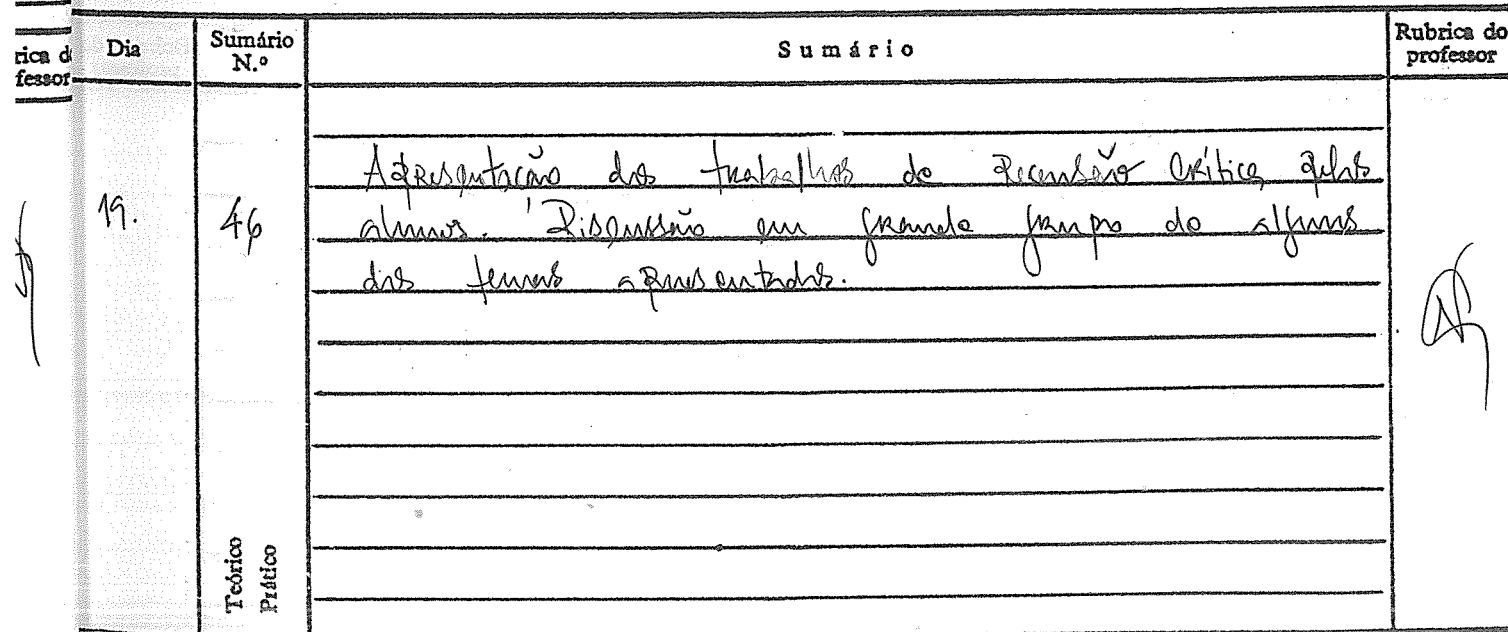 rica d
fessor
Dia
Sumário
N.º
Sumário
Rubrica do
professor
19.
46
Apresentação dos trabalhos de Recensão Crítica pelos
alunos. Discussão em grande grupo de alguns
dos temas apresentados.
Teórico
Prático